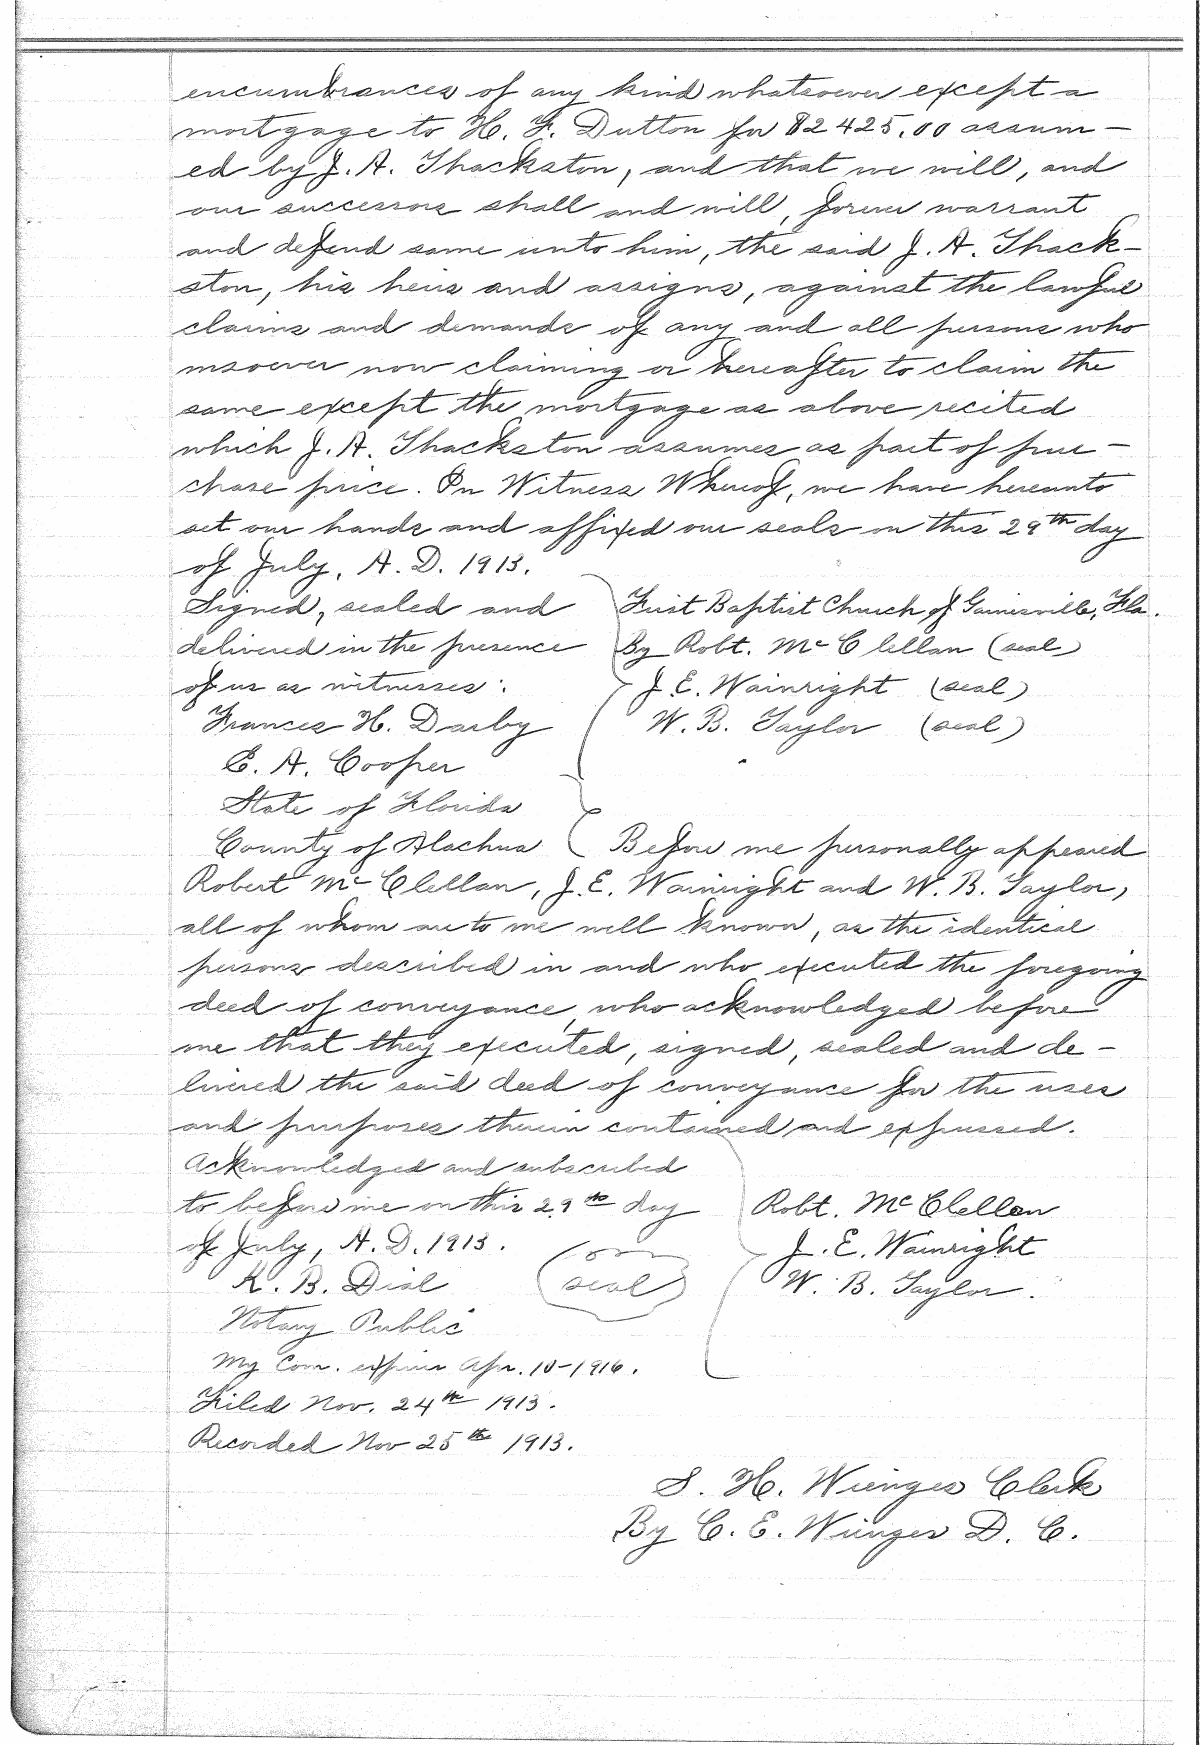 encumbrances of any kind whatsoever except a
mortgage to H. F. Dutton for $2425.00 assum-
ed by J. A. Thackston, and that we will, and
our successors shall and will, forever warrant
and defend same unto him, the said J. A. Thack-
ston, his heirs and assigns, against the lawful
claims and demands of any and all persons who
msoever now claiming or hereafter to claim the
same except the mortgage as above recited
which J. A. Thackston assumes as part of pur-
chase price. In Witness Whereof, we have hereunto
set our hands and affixed our seals on this 29th day
of July, A. D. 1913.
Signed, sealed and
delivered in the presence
of us as witnesses:
Frances H. Darby
E. A. Cooper
First Baptist Church of Gainesville, Fla.
By Robt. McClellan (seal)
J. E. Wainright (seal)
W. B. Taylor (seal)
State of Florida
County of Alachua Before me personally appeared
Robert McClellan, J. E. Wainright and W. B. Taylor,
all of whom are to me well known, as the identical
persons described in and who executed the foregoing
deed of conveyance, who acknowledged before
me that they executed, signed, sealed and de-
livered the said deed of conveyance for the uses
and purposes therein contained and expressed.
Acknowledged and subscribed
to before me on this 29th day
of July, A. D. 1913.
K. B. Dial (seal)
Notary Public
My Com. expires Apr. 10-1916.
Robt. McClellan
J. E. Wainright
W. B. Taylor.
Filed Nov. 24th 1913.
Recorded Nov 25th 1913.
S. H. Wienges Clerk
By C. E. Wienges D. C.